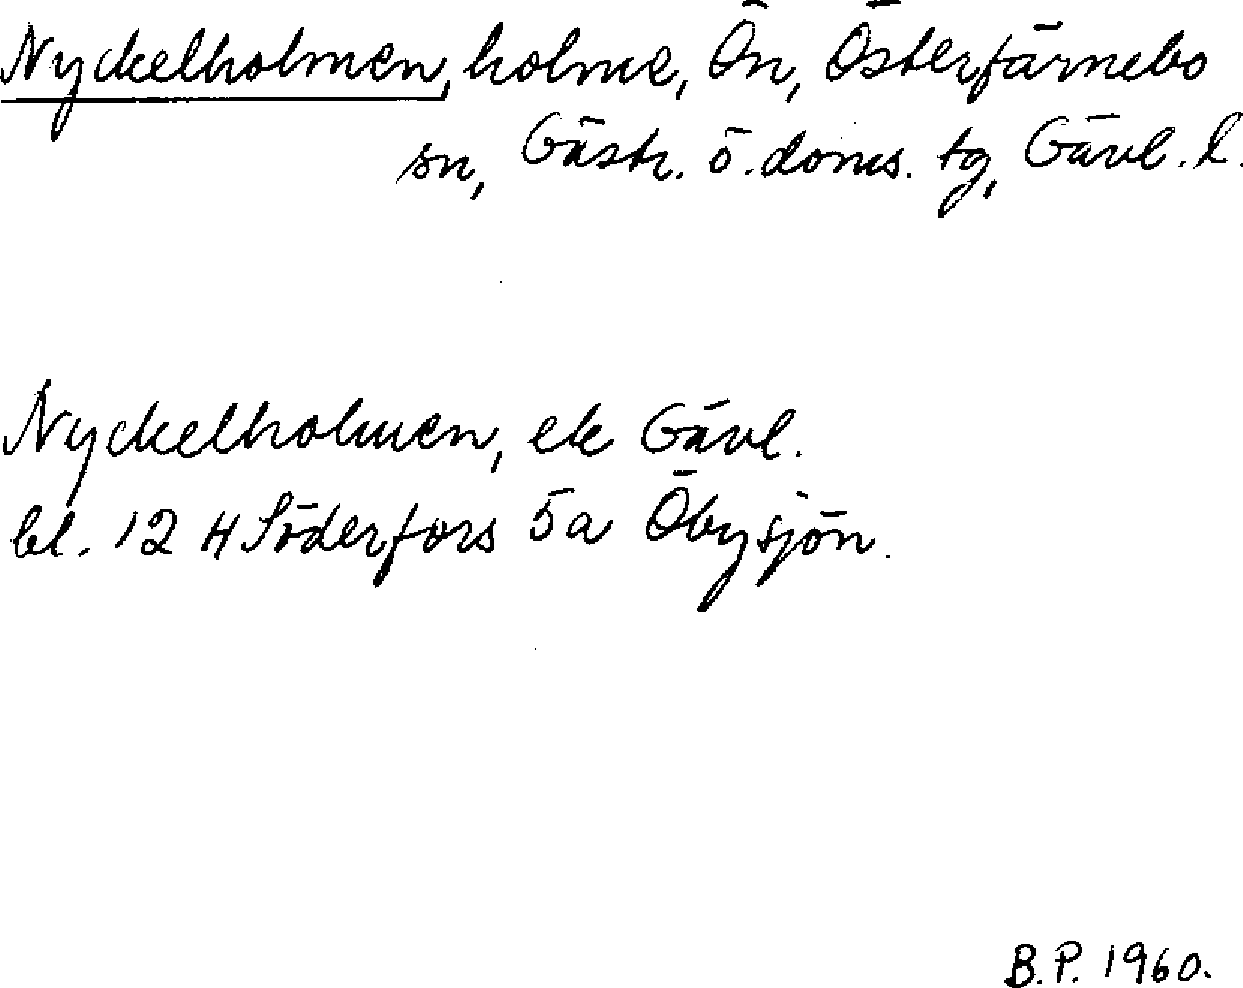 Nyckelholmen, holme, Ön, Österfärnebo
sn, Gästr. ö. doms. tg, Gävl. l.
Nyckelholmen, ek Gävl.
bl. 12 H Söderfors 5a Öbysjön.
B.P. 1960.